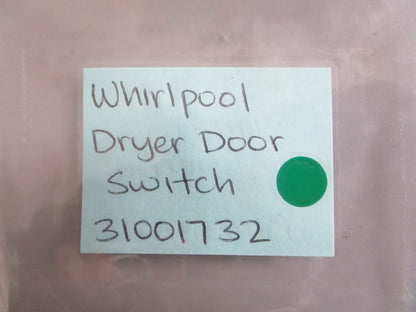 Whirlpool
Dryer Door
Switch
31001732